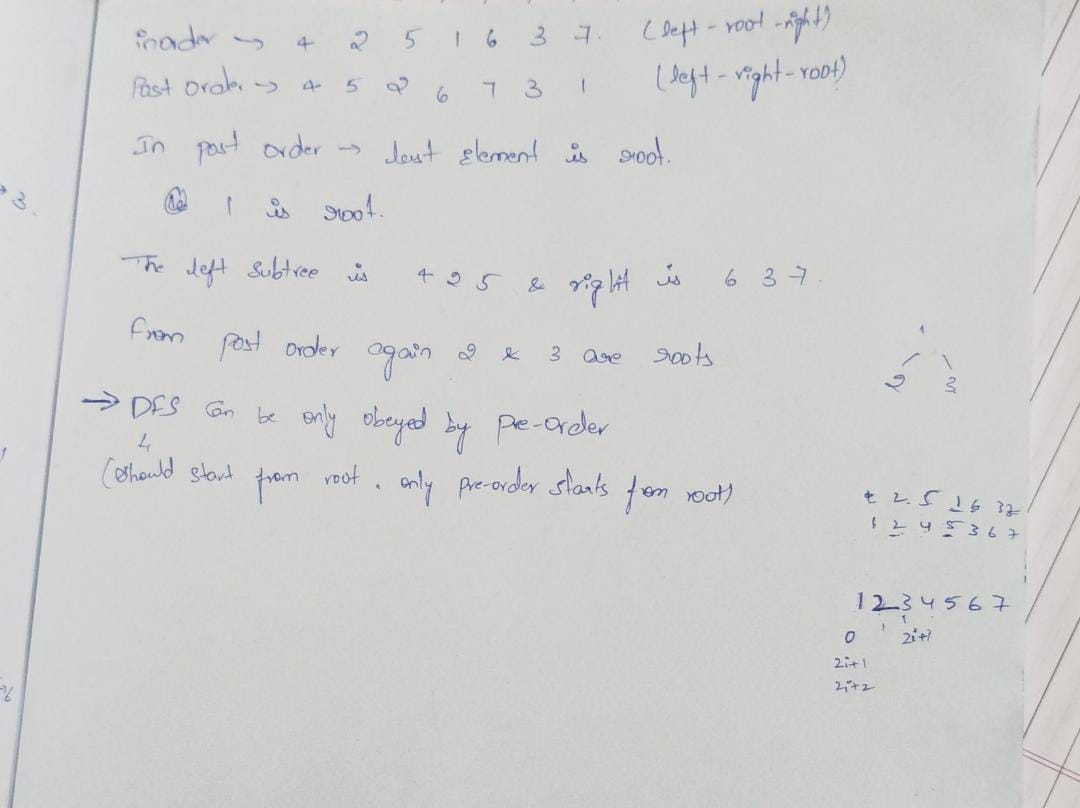 inorder → 4 2 5 1 6 3 7. (left - root - right)
Post order → 4 5 2 6 7 3 1 (left - right - root)
In post order → last element is root.
1 is root.
3.
The left subtree is 4 2 5 & right is 6 3 7.
from post order again 2 & 3 are roots
1
2 3
→ DFS can be only obeyed by pre-order
↳
(should start from root. only pre-order starts from root)
2. 5 1 6 3 7
1 2 4 5 3 6 7
1 2 3 4 5 6 7
0 1 2i+1
2i+1
2i+2